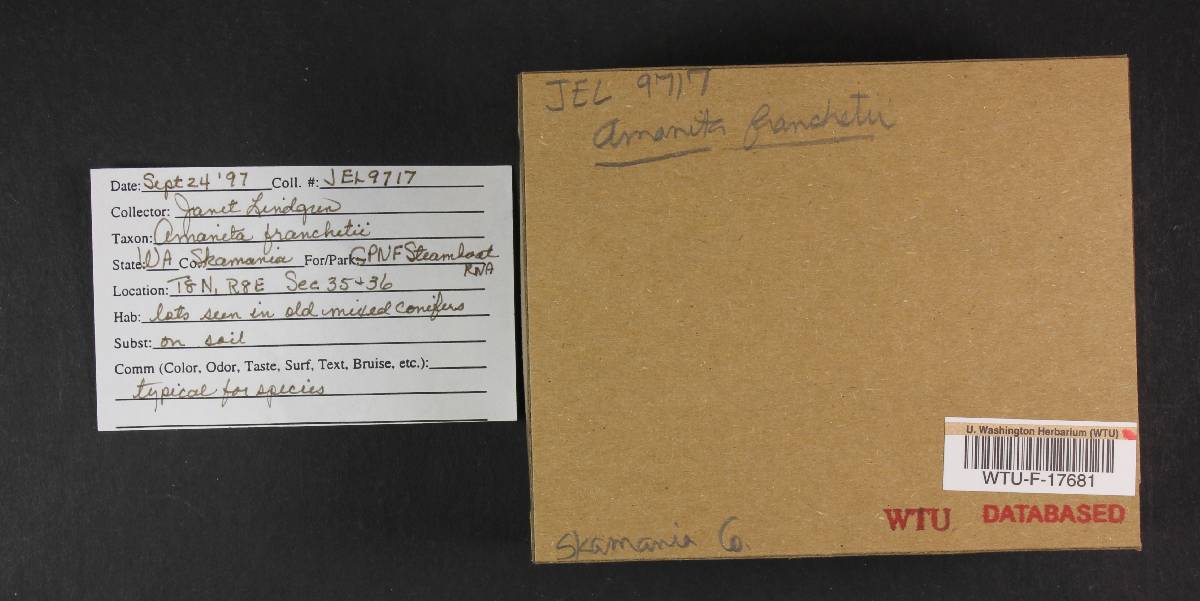 Date: Sept 24 '97 Coll. #: JEL9717
Collector: Janet Lindgren
Taxon: Amanita franchetii
State: WA Co. Skamania For/Park: GPNF Steamboat
RNA
Location: T8N, R8E Sec 35+36
Hab: lots seen in old mixed conifers
Subst: on soil
Comm (Color, Odor, Taste, Surf, Text, Bruise, etc.):
typical for species
JEL 9717
Amanita franchetii
U. Washington Herbarium (WTU)
WTU-F-17681
WTU DATABASED
Skamania Co.